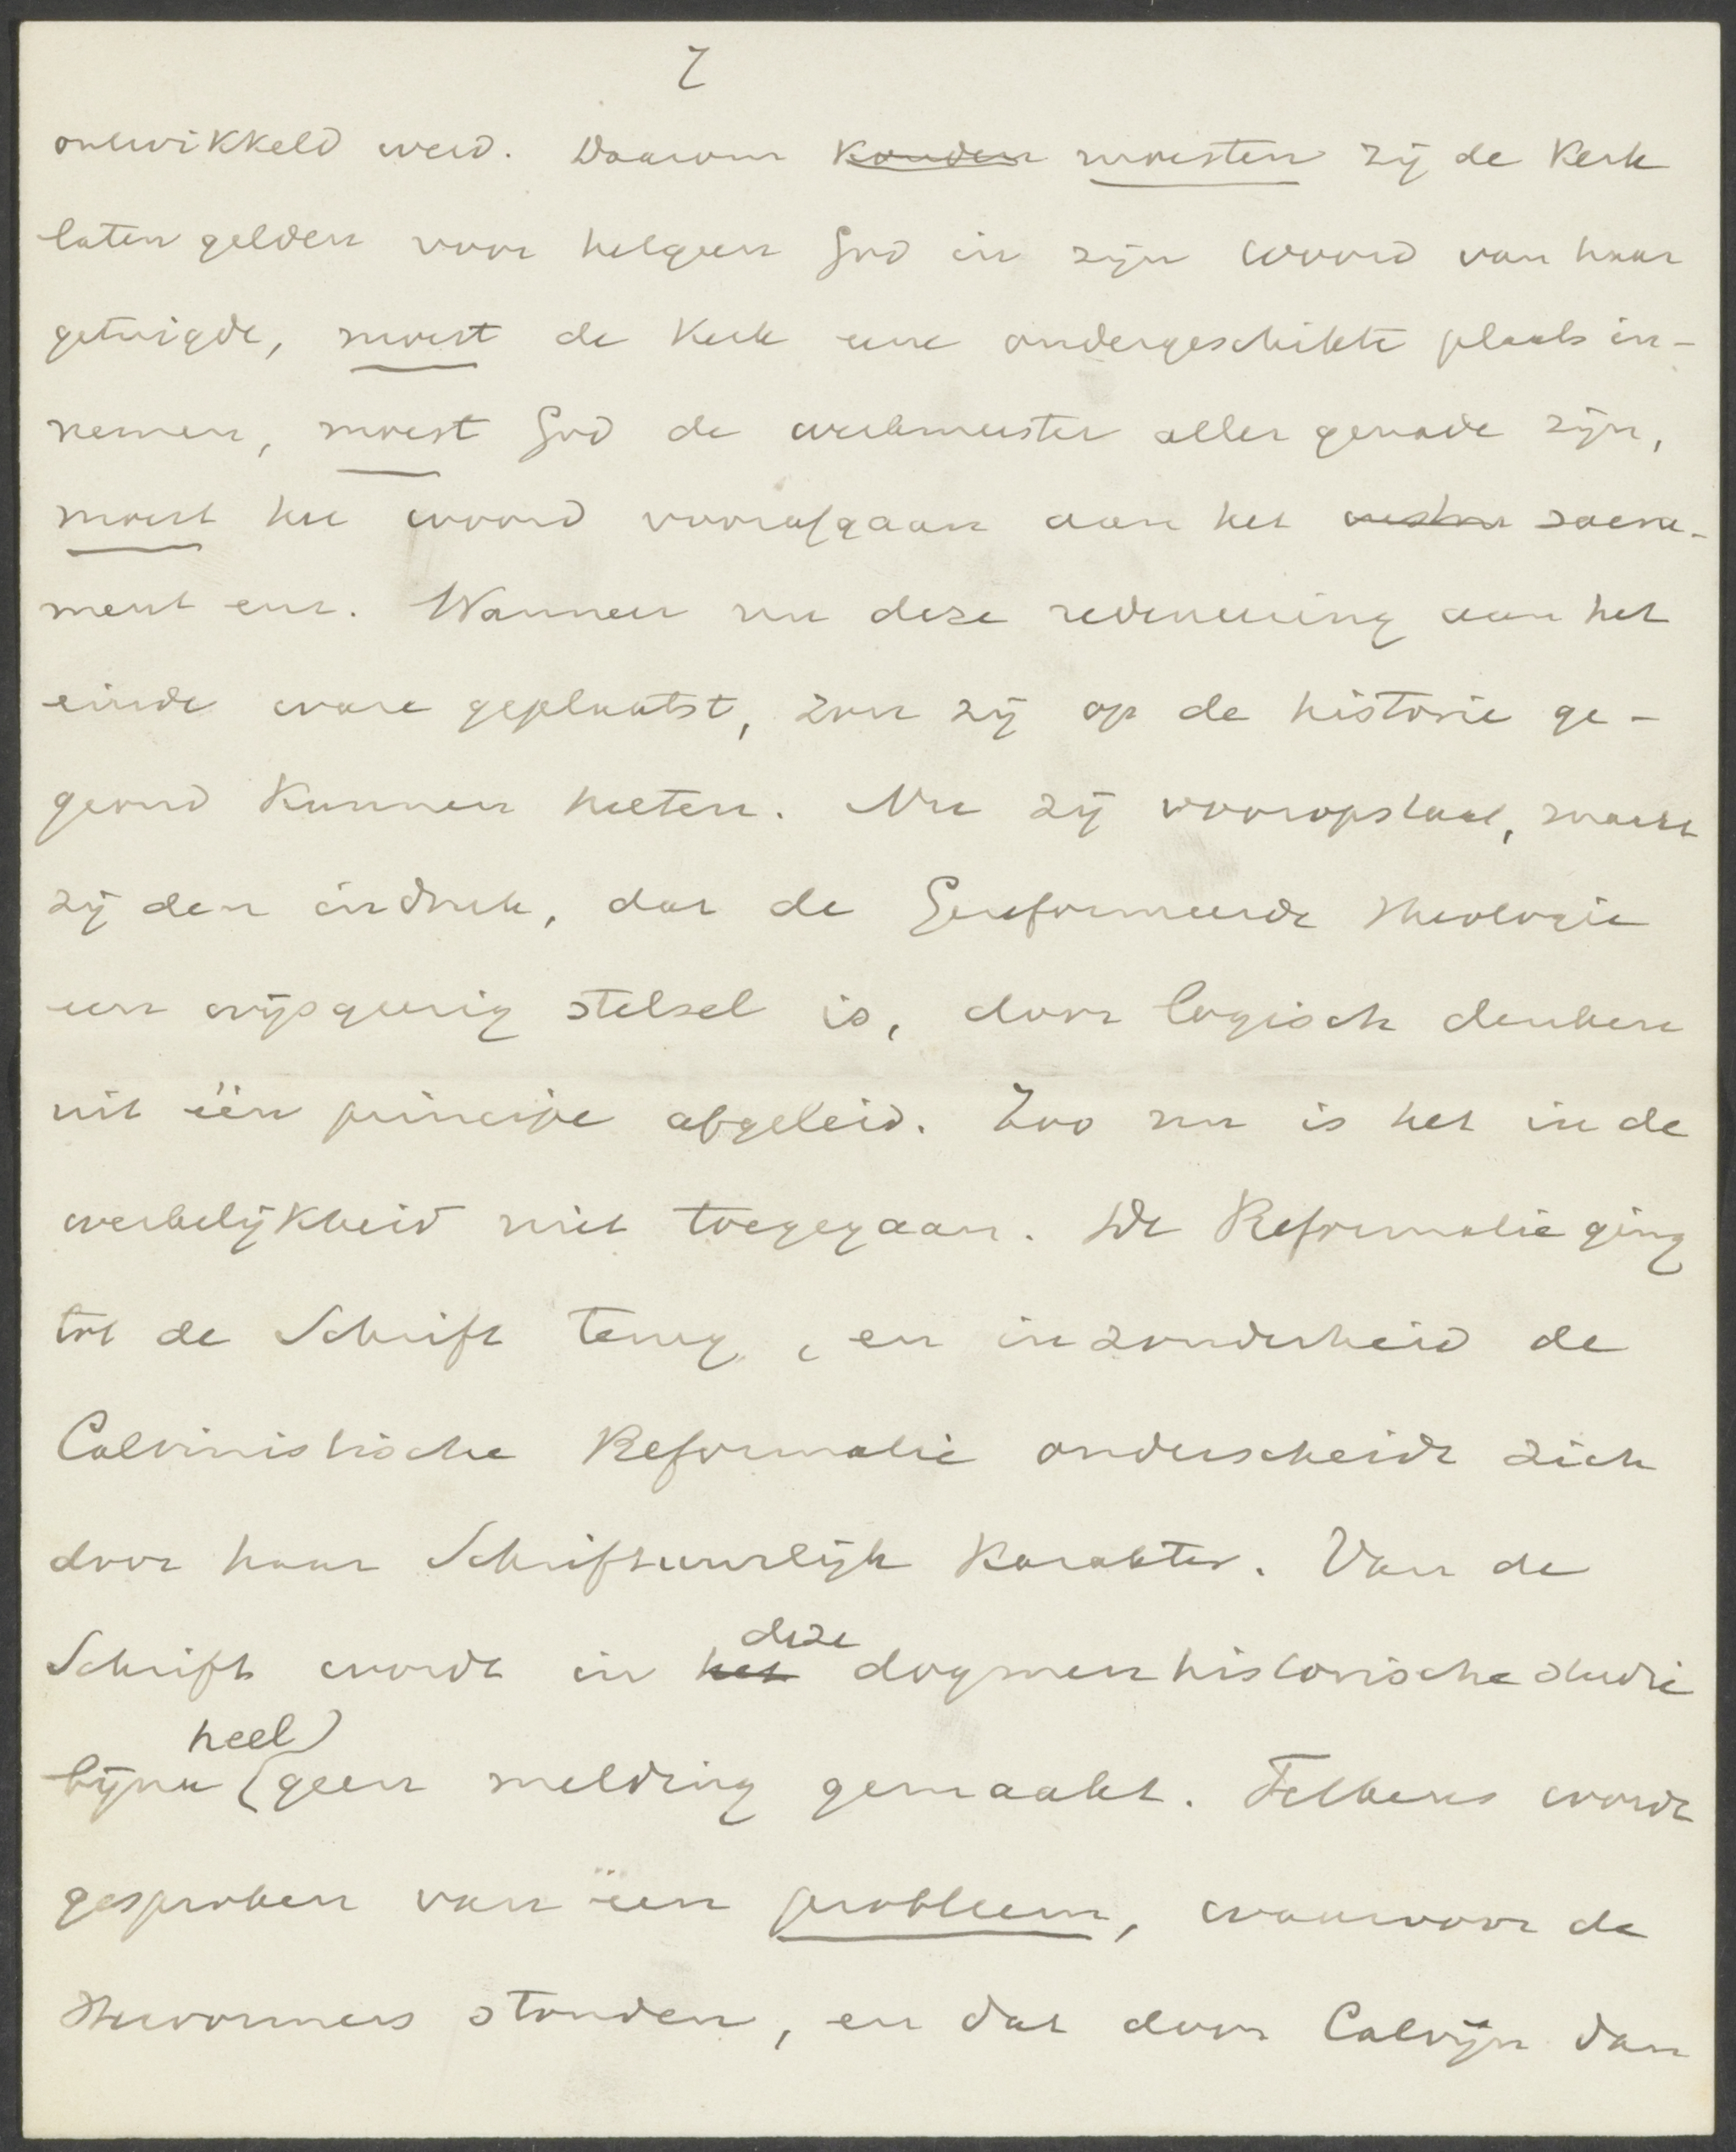 7
ontwikkeld werd. Daarom konden moesten zij de kerk
laten gelden voor hetgeen God in zijn woord van haar
getuigde, moest de Kerk eene ondergeschikte plaats in-
nemen, moest God de werkmeester aller genade zijn,
moest het woord voorafgaan aan het sacra-
ment enz. Wanneer nu deze redeneering aan het
einde ware geplaatst, zou zij op de historie ge-
grond kunnen heeten. Nu zij vooropstaat, maakt
zij den indruk, dat de Gereformeerde Theologie
een wijsgeerig stelsel is, door logisch denken
uit één principe afgeleid. Zoo nu is het in de
werkelijkheid niet toegegaan. De Reformatie ging
tot de Schrift terug, en inzonderheid de
Calvinistische Reformatie onderscheidt zich
door haar Schriftuurlijk karakter. Van de
Schrift wordt in het deze dogmenhistorische studie
bijna (heel) geen melding gemaakt. Telkens wordt
gesproken van een probleem, waarvoor de
Hervormers stonden, en dat door Calvijn dan